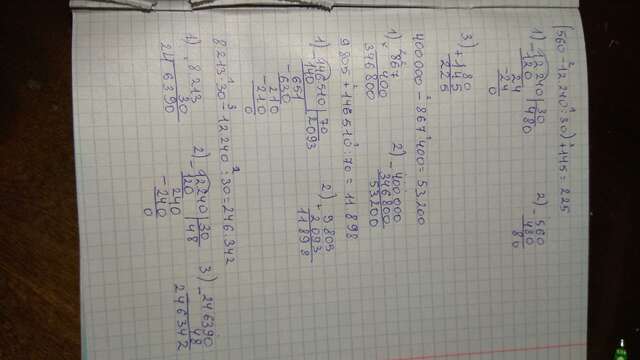 (560 - 12 240 : 30) + 145 = 225
1) - 12 240 | 30
120 | 480
24
- 24
0
2) - 560
480
80
3) + 80
145
225
400 000 - 867 · 400 = 53 200
1) × 867
400
346 800
2) - 400 000
346 800
53 200
9 805 + 146 510 : 70 = 11 898
1) - 146 510 | 70
140 | 2093
- 651
630
- 210
- 210
0
2) + 9 805
2 093
11 898
8213 · 30 - 12 240 : 30 = 246.342
1) × 8213
30
246390
2) - 12240 | 30
120 | 48
240
- 240
0
3) - 246390
48
246342